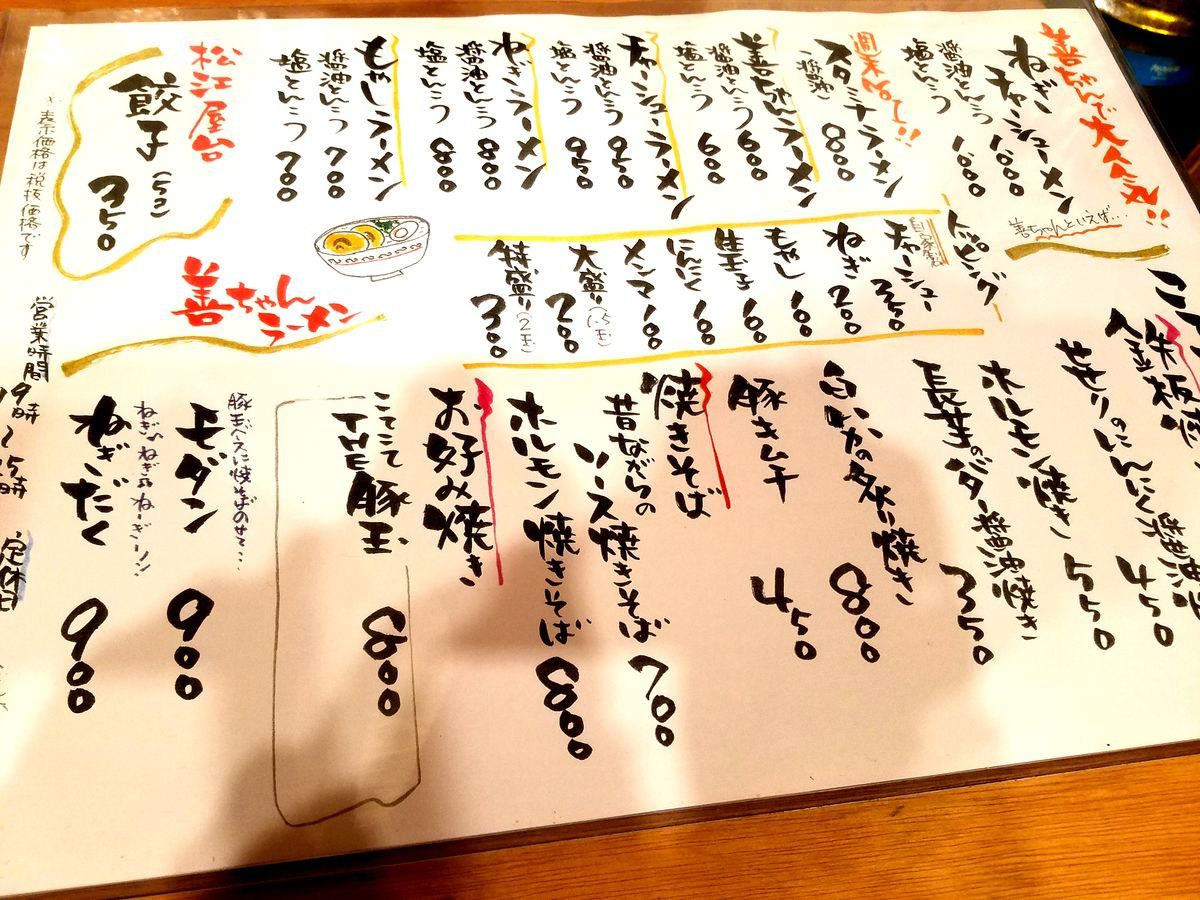 善ちゃんで大人気!!
善ちゃんといえば…
ねぎチャーシューメン
醤油とんこつ 1000
塩とんこつ 1000
週末限定!!
スタミナラーメン
(醤油) 800
善ちゃんラーメン
醤油とんこつ 600
塩とんこつ 600
チャーシューラーメン
醤油とんこつ 950
塩とんこつ 950
ねぎラーメン
醤油とんこつ 800
塩とんこつ 800
もやしラーメン
醤油とんこつ 700
塩とんこつ 700
松江屋台
餃子(5コ) 350
※表示価格は税抜価格です
トッピング
自家製
チャーシュー 350
ねぎ 200
もやし 100
生玉子 100
にんにく 100
メンマ 100
大盛り(1.5玉) 200
特盛り(2玉) 300
善ちゃん
ラーメン
鉄板焼
せせりのにんにく醤油焼 450
ホルモン焼き 550
長芋のバター醤油焼き 350
白いかの炙り焼き 800
豚キムチ 450
焼きそば
昔ながらの
ソース焼きそば 700
ホルモン焼きそば 800
お好み焼き
こてこて
THE豚玉 800
豚玉ベースに焼そばのせて…
モダン 900
ねぎねぎねーぎーリン
ねぎだく 900
営業時間
定休日